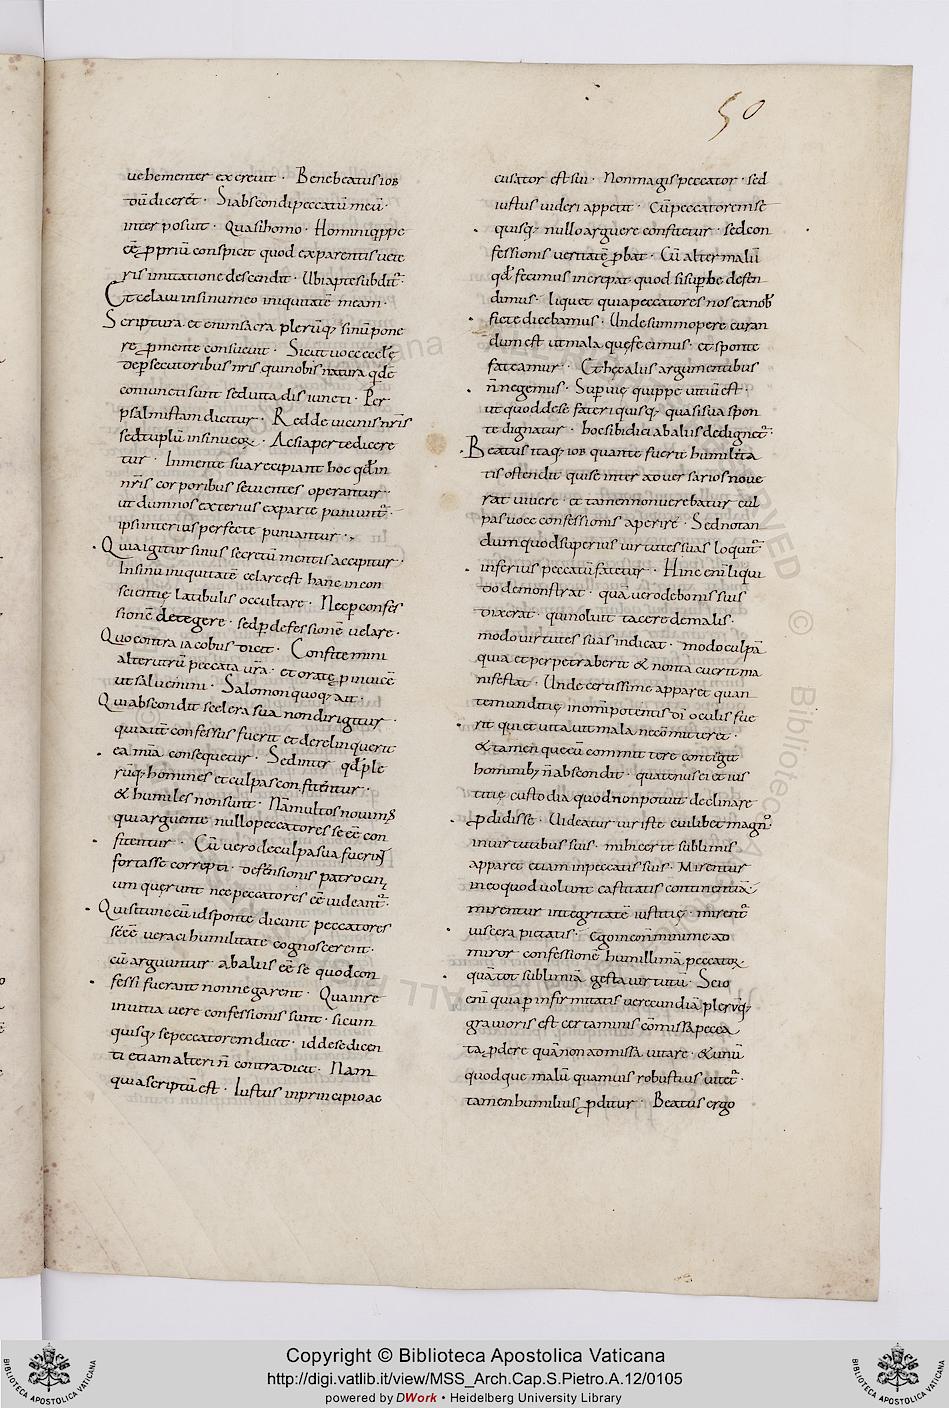 50
uehementer excreuit · Bene beatus iob
cū diceret · Si abscondi peccatū meū ·
inter posuit · Quasi homo · Homini q̄ppe
eē ꝓpriū conspicit quod ex parentis uete
ris imitatione descendit · Ubi apte subdit̄ ·
Et celaui in sinu meo iniquitatē meam ·
Scriptura etenim sacra plerūq; sinū pone
re ꝓ mente consueuit · Sicut uoce ecclę
de ꝑsecutoribus nr̄is qui nobis natura q̄dē
coniuncti sunt sed uita disiuncti · Per
psalmistam dicitur · Redde uicinis nr̄is
septuplū in sinu eoꝝ · Ac si aperte dicere
tur · In mente sua recipiant hoc qđ in
nr̄is corporibus seuientes operantur ·
ut dum nos exterius ex parte puniunt̄ ·
ipsi interius perfecte puniantur ·
Quia igitur sinus secretū mentis accipitur ·
In sinu iniquitatē celare est hanc in con
scientię latibulis occultare · Nec ꝑ confes
sionē detegere · sed ꝑ defessionē uelare ·
Quo contra iacobus dicit · Confitemini
alterutrū peccata ur̄a · et orate p inuicē
ut saluemini · Salomon quoq; ait ·
Qui abscondit scelera sua non dirigitur ·
qui aūt confessus fuerit et derelinquerit
ea mīa consequetur · Sed inter qđ ple
rūq; homines et culpas confitentur ·
& humiles non sunt · Nā multos nouim
qui arguente nullo peccatores se eē con
fitentur · Cū uero de culpa sua fuerint
fortasse correpti · defensionis patrocini
um querunt ne peccatores eē uideant̄ ·
Qui si tunc cū id sponte dicunt peccatores
se eē ueraci humilitate cognoscerent ·
cū arguuntur ab aliis eē se quod con
fessi fuerant non negarent · Qua in re
initia uere confessionis sunt · si cum
quisq; se peccatorem dicit · id de se dicen
ti etiam alteri n̄ contradicit · Nam
quia scriptū est · Iustus in principio ac
cusator est sui · Non magis peccator · sed
iustus uideri appetit · Cū peccatorem se
quisq; nullo arguere confitetur · sed con
fessionis ueritatē ꝓbat · Cū alter malū
qđ fecimus increpat quod si supbe defen
dimus · liquet quia peccatores nos ex nob
ficte dicebamus · Unde summopere curan
dum est ut mala quę fecimus · et sponte
fateamur · Et hęc aliis arguentibus
n̄ negemus · Supbię quippe uitiū est ·
ut quod de se fateri quisq; quasi sua spon
te dignatur · hoc sibi dici ab aliis dedignet̄ ·
Beatus itaq; iob quante fuerit humilita
tis ostendit qui se inter aduersarios noue
rat uiuere · et tamen non uerebatur cul
pas uoce confessionis aperire · Sed notan
dum quod superius uirtutes suas loquit̄
inferius peccatū fatetur · Hinc enī liqui
do demonstrat · quā uero de bonis suis
dixerat · qui noluit tacere de malis ·
modo uirtutes suas indicat · modo culpā
quia et perpetrauerit & non tacuerit ma
nifestat · Unde certissime apparet quan
te munditię in omīpotentis dī oculis fue
rit qui et uitauit mala ne cōmitteret ·
& tamen quę eū committere contigit
hominib; n̄ abscondit · quatenus ei et ius
titię custodia quod non potuit declinare
ꝓdidisse · Uideatur uir iste cuilibet magn
in uirtutibus suis · mihi certe sublimis
apparet etiam in peccatis suis · Mirentur
in eo quod uolunt castitatis continentiā
mirentur integritatē iustitię · mirent̄
uiscera pietatis · ego in eo n̄ minime ad
miror confessionē humillimā peccatoꝝ
quā tot sublimiā gesta uirtutū · Scio
enī quia p infirmitatis uerecundiā plerūq;
grauioris est certaminis cōmissa pecca
ta ꝓdere quā non admissa uitare · & unū
quodque malū quamuis robustius uitet̄ ·
tamen humilius ꝓditur · Beatus ergo
Copyright © Biblioteca Apostolica Vaticana
http://digi.vatlib.it/view/MSS_Arch.Cap.S.Pietro.A.12/0105
powered by DWork • Heidelberg University Library